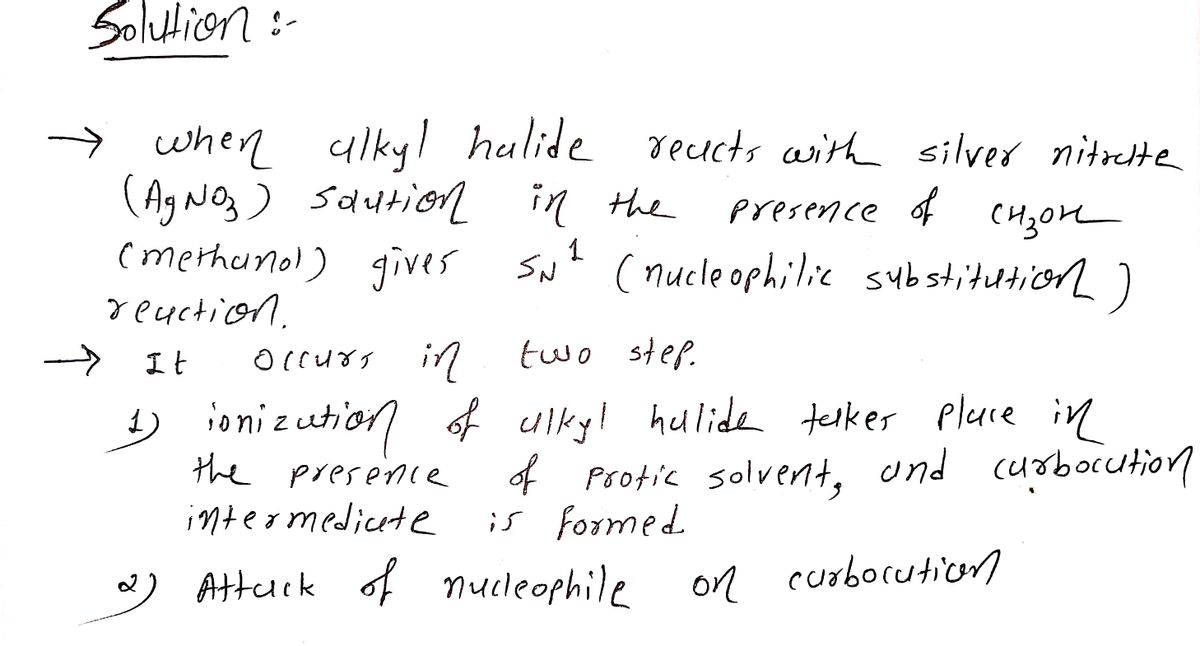 Solution :-
→ when alkyl halide reacts with silver nitrate
(AgNO₃) solution in the presence of CH₃OH
(methanol) gives SN¹ (nucleophilic substitution)
reaction.
→ It occurs in two step.
1) ionization of alkyl halide takes place in
the presence of protic solvent, and carbocation
intermediate is formed
2) Attack of nucleophile on carbocation